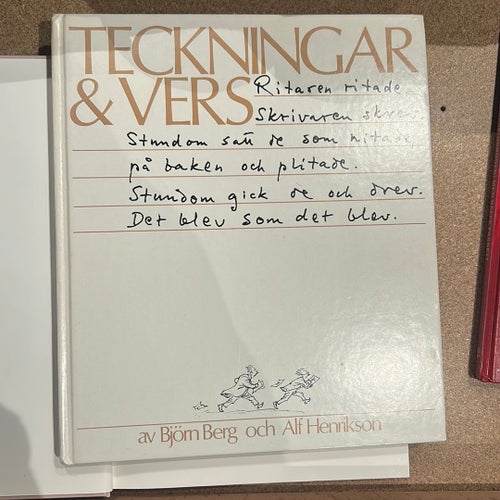 TECKNINGAR
& VERS
Ritaren ritade
Skrivaren skrev.
Stundom satt de som nitade
på baken och plitade.
Stundom gick de och drev.
Det blev som det blev.
av Björn Berg och Alf Henrikson